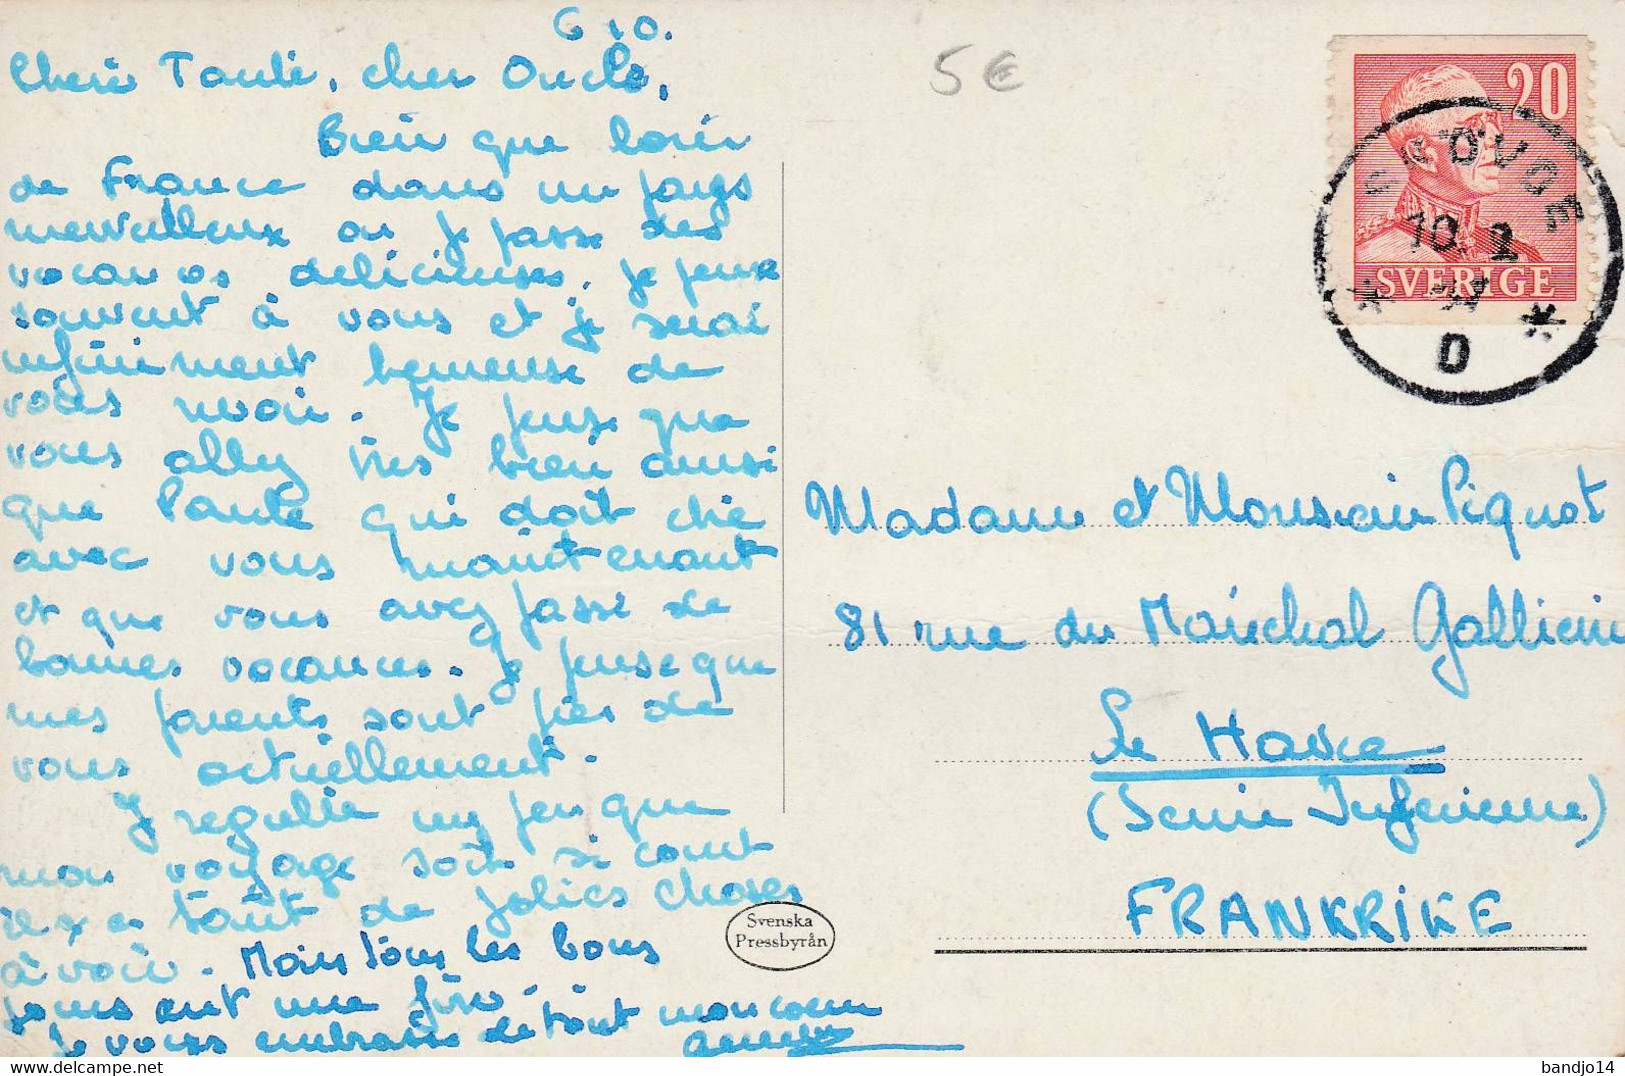 6.10.
Chère Tante, cher Oncle,
Bien que loin
de France dans un pays
merveilleux où je passe des
vacances délicieuses, je pense
souvent à vous et je serai
infiniment heureuse de
vous revoir. Je pense que
vous allez très bien ainsi
que Paule qui doit être
avec vous maintenant
et que vous avez passé de
bonnes vacances. Je pense que
mes parents sont près de
vous actuellement.
Je regrette un peu que
mon voyage soit si court
il y a tant de jolies choses
à voir. Mais tous les bons
jours ont une fin.
Je vous embrasse de tout mon coeur
5€
20
SVERIGE
SKÖVDE
10
D
Madame et Monsieur Piquot
81 rue du Maréchal Gallieni
Le Havre
(Seine Inférieure)
FRANKRIKE
Svenska
Pressbyrån
bandjo14